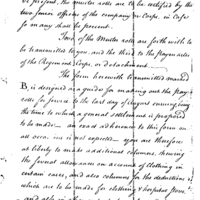 be present, the muster rolls are to be certified by the
two senior officers of the company or Corps, in case so
many shall be present.
Two of the Muster rolls are forth with to
be transmitted to you and the third to the paymaster
of the Regiment, Corps, or detachment.
The form herewith transmitted marked
B, is designed as a guide for making out the pay
rolls for service to the last day of August ensuing,
the time to which a general settlement is proposed
to be made — an exact adherence to this form in
all occasions is not expected — you are therefore
at liberty to make additional columns, shewing
the formal allowance on account of clothing in
certain cases, and also columns for the deductions
which are to be made for clothing &